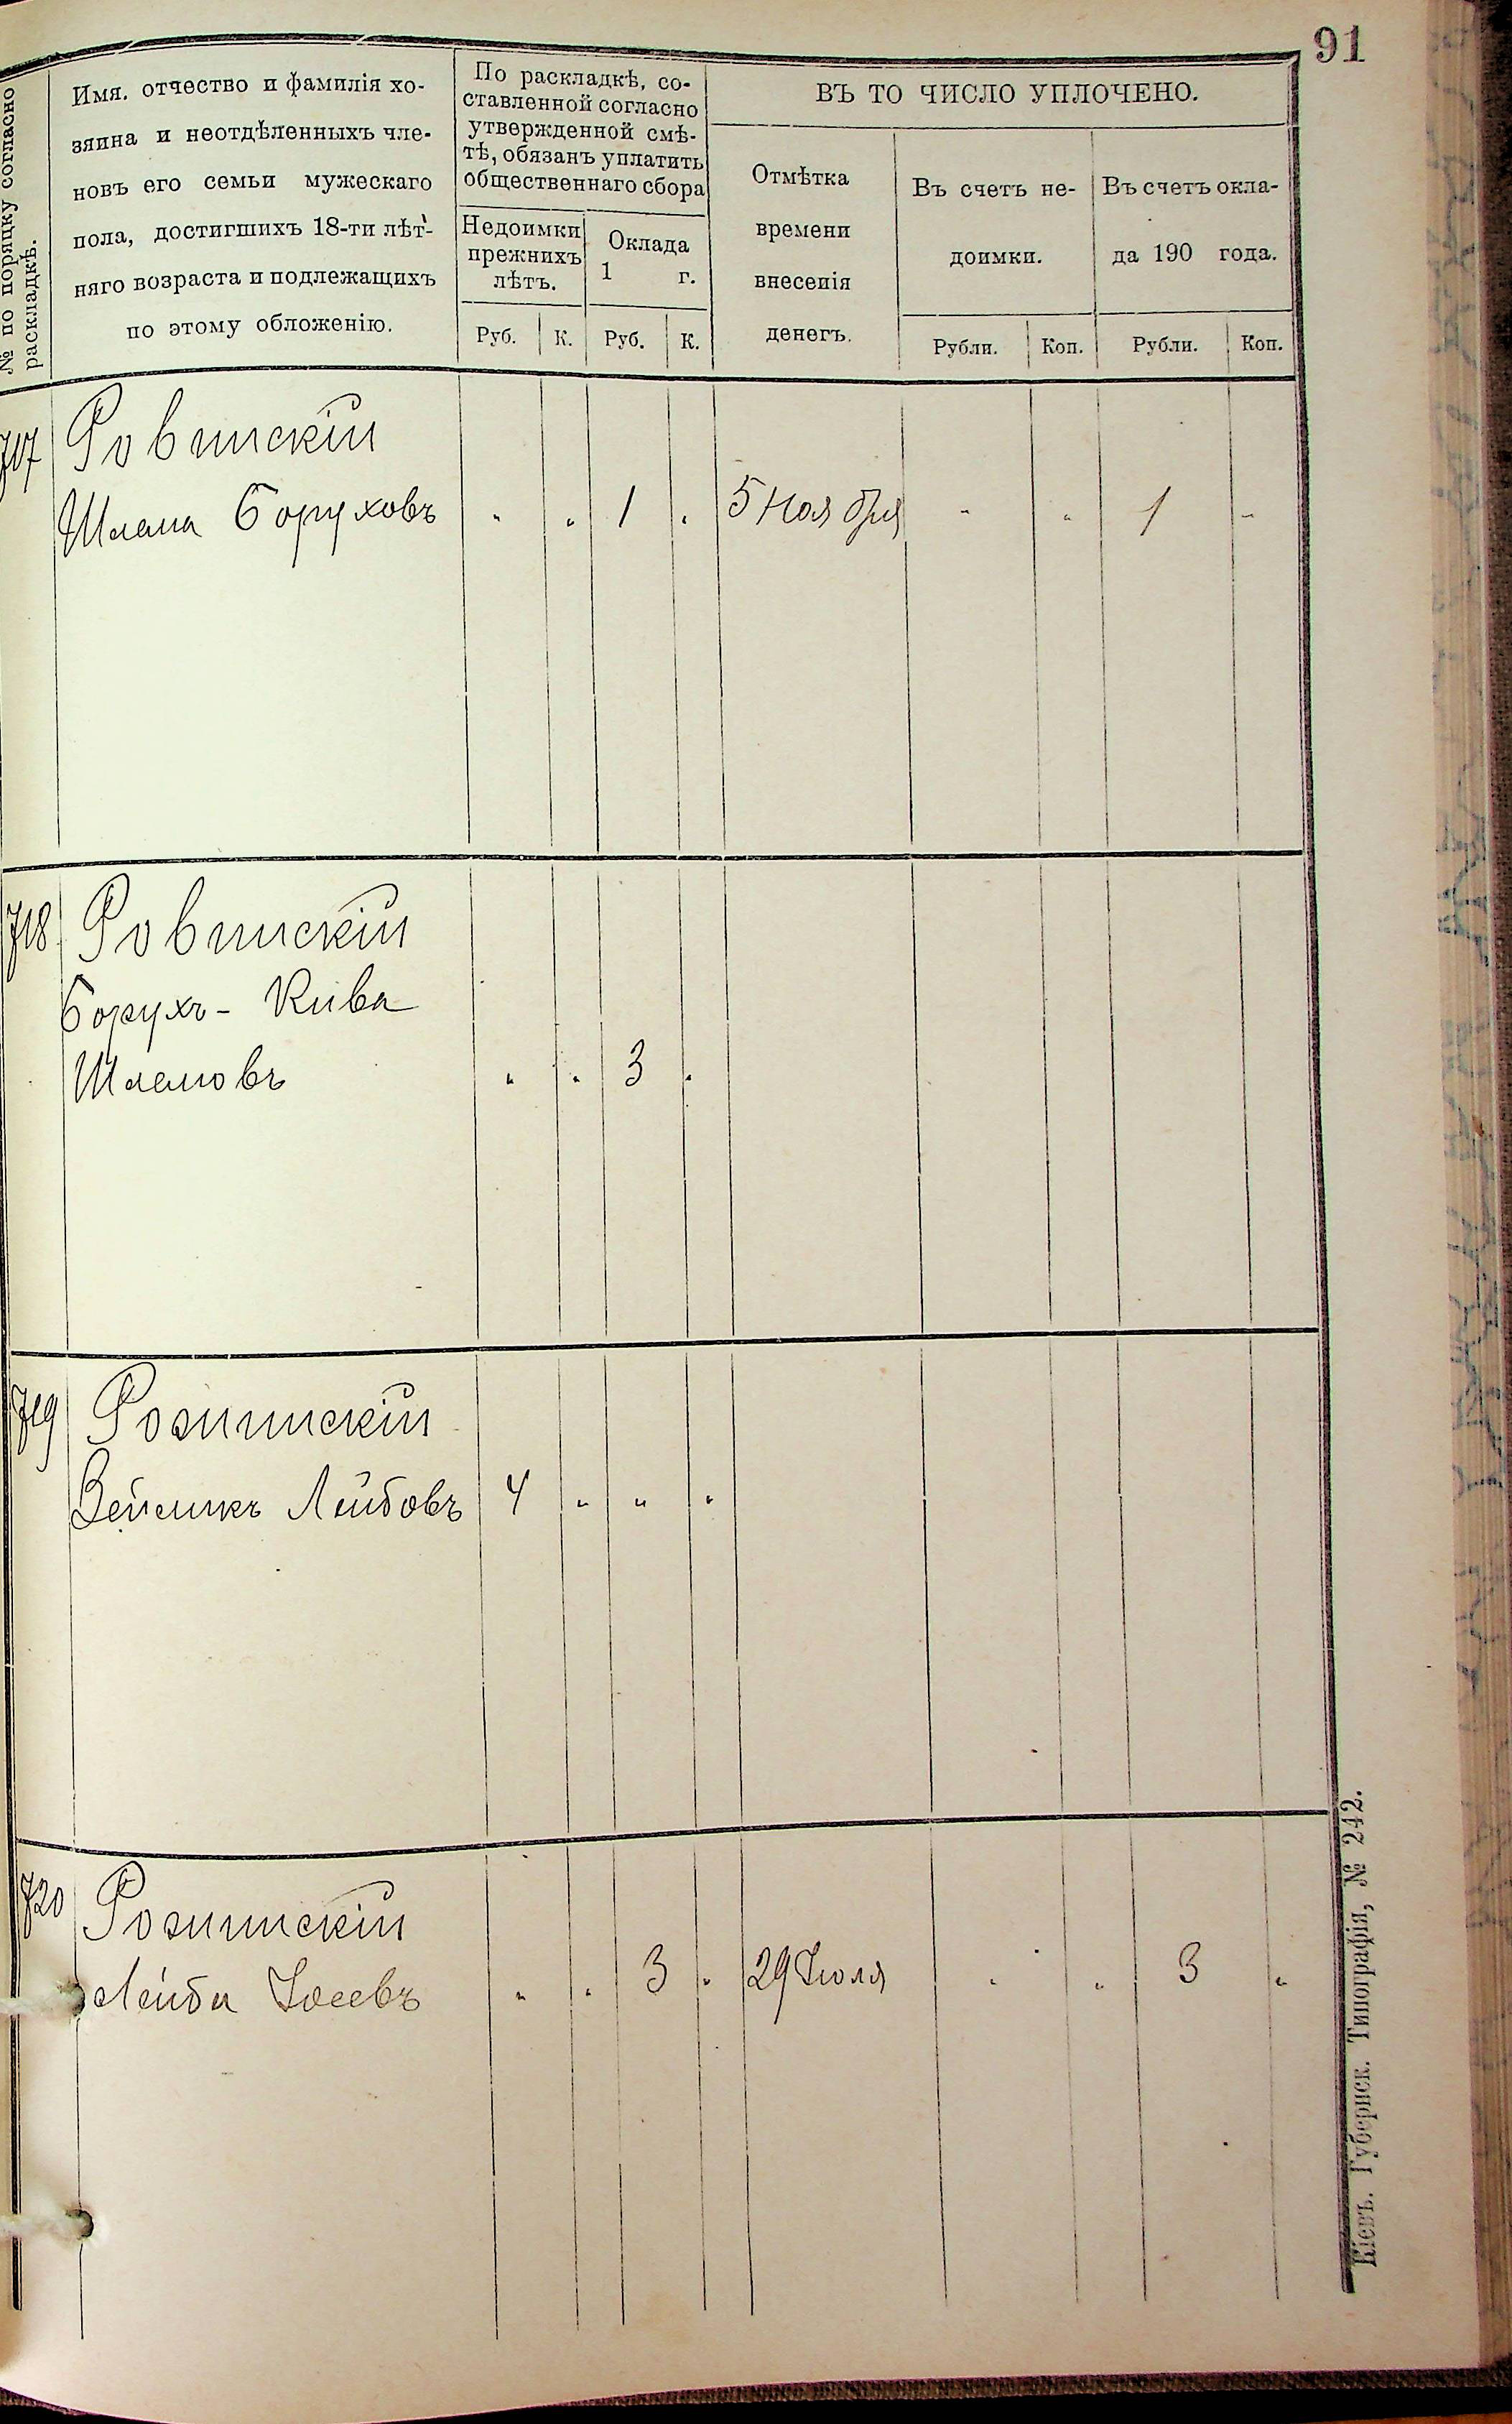 91
№ по порядку согласно
раскладкѣ.
Имя. отчество и фамилія хо-
зяина и неотдѣленныхъ чле-
новъ его семьи мужескаго
пола, достигшихъ 18-ти лѣт-
няго возраста и подлежащихъ
по этому обложенію.
По раскладкѣ, со-
ставленной согласно
утвержденной смѣ-
тѣ, обязанъ уплатить
общественнаго сбора
Недоимки
прежнихъ
лѣтъ.
Оклада
1 г.
Руб. К. Руб. К.
ВЪ ТО ЧИСЛО УПЛОЧЕНО.
Отмѣтка
времени
внесенія
денегъ.
Въ счетъ не-
доимки.
Въ счетъ окла-
да 190 года.
Рубли. Коп. Рубли. Коп.
717 Ровинскій
Шлема Боруховъ „ „ 1 „ 5 Ноября „ „ 1 „
718 Ровинскій
Борухъ - Кива
Шлемовъ „ „ 3 „
719 Розинскій
Зейликъ Лейбовъ 4 „ „ „
720 Розинскій
Лейба Іосевъ „ „ 3 „ 29 Іюля „ „ 3 „
Кіевъ. Губернск. Типографія, № 242.